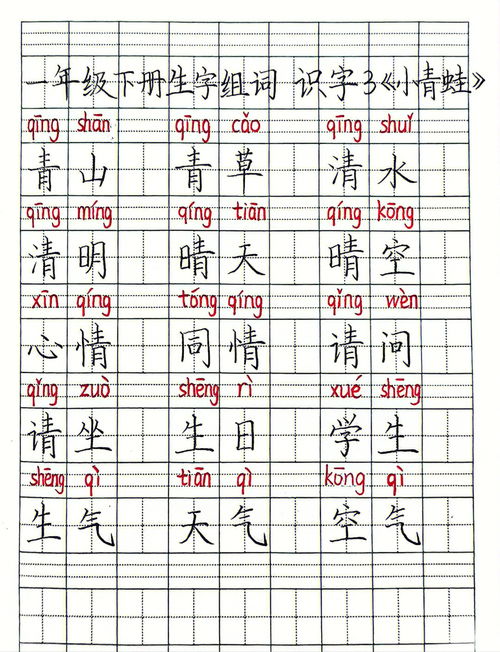 一年级下册生字组词 识字3《小青蛙》
qīng shān qīng cǎo qīng shuǐ
青山 青草 清水
qīng míng qíng tiān qíng kōng
清明 晴天 晴空
xīn qíng tóng qíng qǐng wèn
心情 同情 请问
qǐng zuò shēng rì xué shēng
请坐 生日 学生
shēng qì tiān qì kōng qì
生气 天气 空气